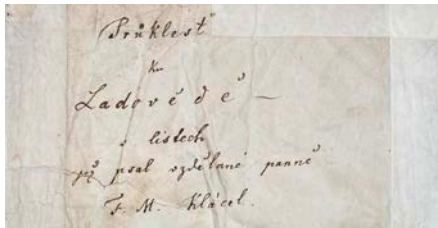 Průklest
k
Ladovědě —
v listech
jež psal vzdělané panně
F. M. Klácel.